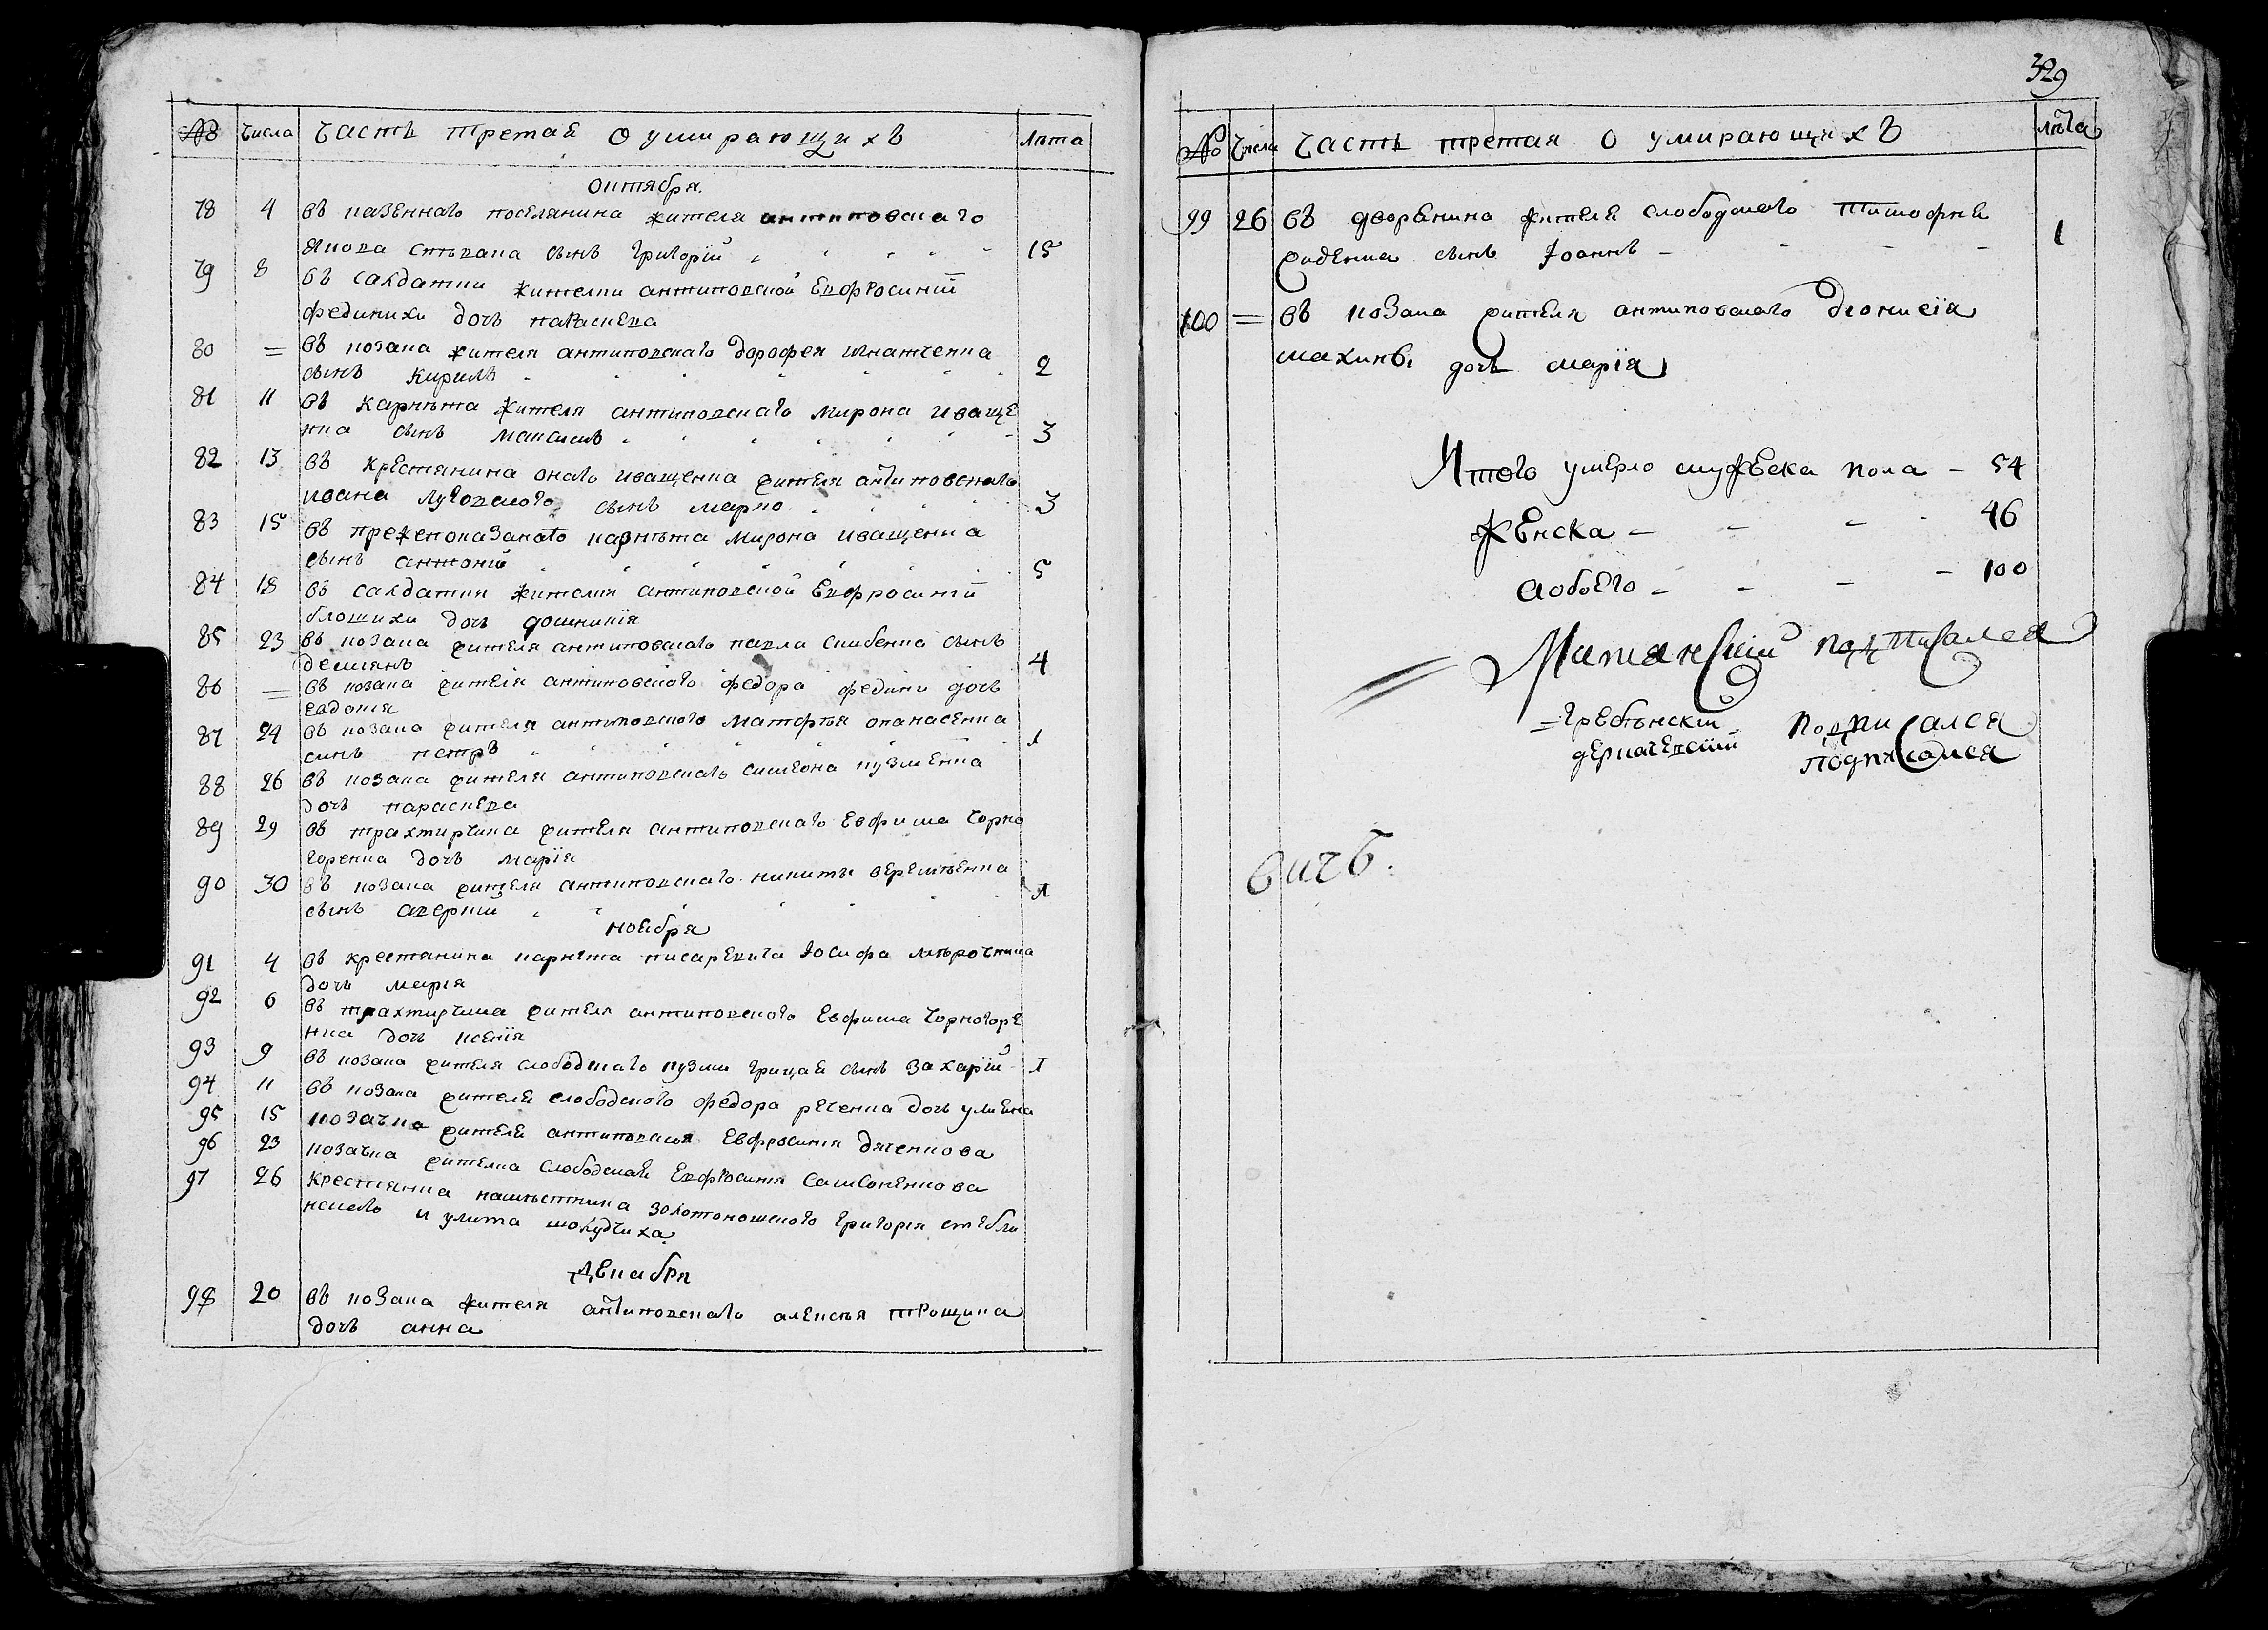 № Числа Часть третая о умирающихъ Лѣта
октября
78 4 въ казенного поселянина жителя антиповскаго
якова стъпана сынъ григорїй 15
79 8 въ салдатки жителки антиповской Евфросинїи
федикихи дочь параскева
80 = въ козака жителя антиповскаго дорофея игнатченка
сынъ Кирилъ 2
81 11 въ Карнѣта жителя антиповскаго мирона иваще
нка сынъ максимъ 3
82 13 въ крестянина онаго иващенка жителя антиповскаго
ивана луговскаго сынъ марко 3
83 15 въ прежепоказанаго карнѣта мирона иващенка
сынъ антонїй 5
84 18 въ салдатки жителки антиповской Евфросинїи
блошихи дочь домникїя
85 23 въ козака жителя антиповскаго павла скибенка сынъ
демиянъ 4
86 = въ козака жителя антиповского федора федини дочь
евдокїя
87 24 въ козака жителя антиповского матфѣя опанасенка
синъ петръ 1
88 26 въ козака жителя антиповскаго симеона кузменка
дочь параскева
89 29 въ трахтирчика жителя антиповскаго Евфима Чорно
горенка дочь марїя
90 30 въ козака жителя антиповскаго никиты веремѣенка
сынъ аверкїй 1
ноября
91 4 въ крестянина карнѣта писаревича Іосифа мѣрочника
дочь марїя
92 6 въ трахтирчика жителя антиповского Евфима Чорногоре
нка дочь ксенїя
93 9 въ козака жителя слободскаго кузми грицая сынъ захарїй 1
94 11 въ козака жителя слободского федора реченка дочь улияна
95 15 козачка жителка антиповская Евфросинїя дяченкова
96 23 козачка жителка слободская Евфросинїя самсоненкова
97 26 крестянка намѣстника золотоношского григорїя стебли
нского и улита шокудчиха
декабря
98 20 въ козака жителя антиповскаго алексѣя трощина
дочь анна
329
№ Числа Часть третая о умирающихъ лѣта
99 26 въ дворянина жителя слободскаго тимофея
сынъ Іоаннъ 1
100 = въ козака жителя антиповскаго дионисїя
махины дочь марїя
Итого умерло мужеска пола – 54
женска – 46
аобоего – 100
подписался
гребѣнскїй подписался
деркачевскїй подписался